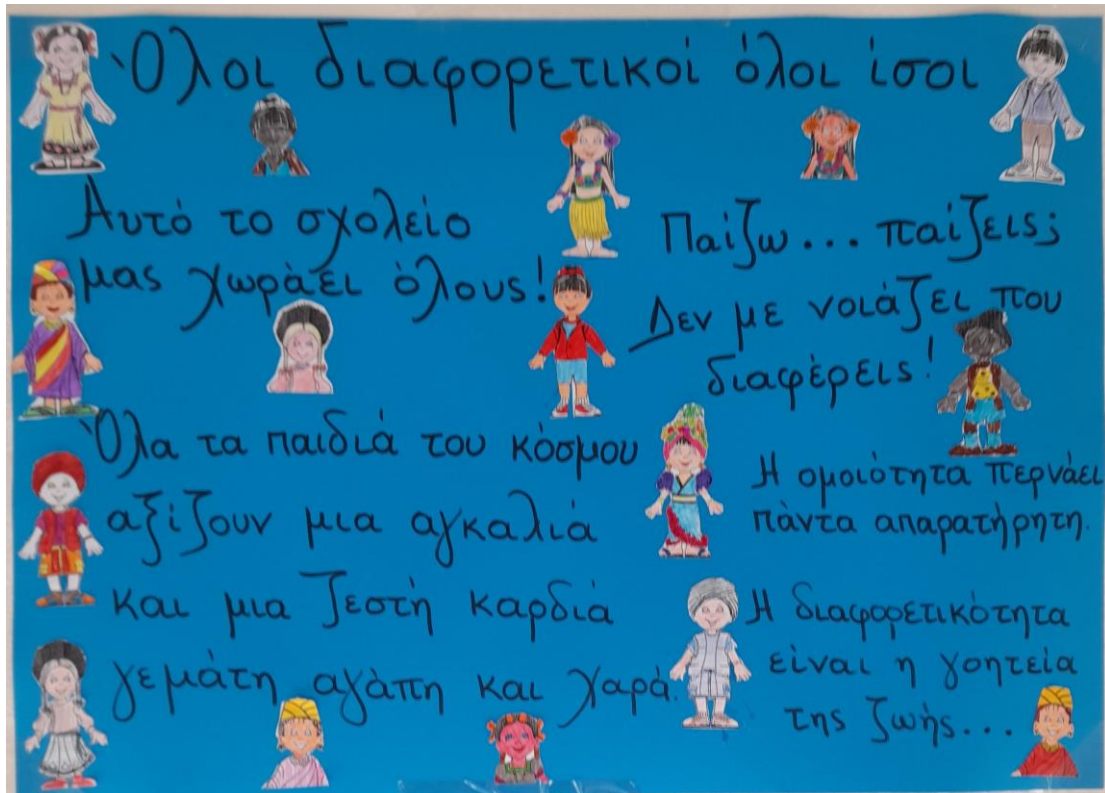 Όλοι διαφορετικοί όλοι ίσοι
Αυτό το σχολείο
μας χωράει όλους!
Παίζω... παίζεις;
Δεν με νοιάζει που
διαφέρεις!
Όλα τα παιδιά του κόσμου
αξίζουν μια αγκαλιά
και μια ζεστή καρδιά
γεμάτη αγάπη και χαρά.
Η ομοιότητα περνάει
πάντα απαρατήρητη.
Η διαφορετικότητα
είναι η γοητεία
της ζωής...